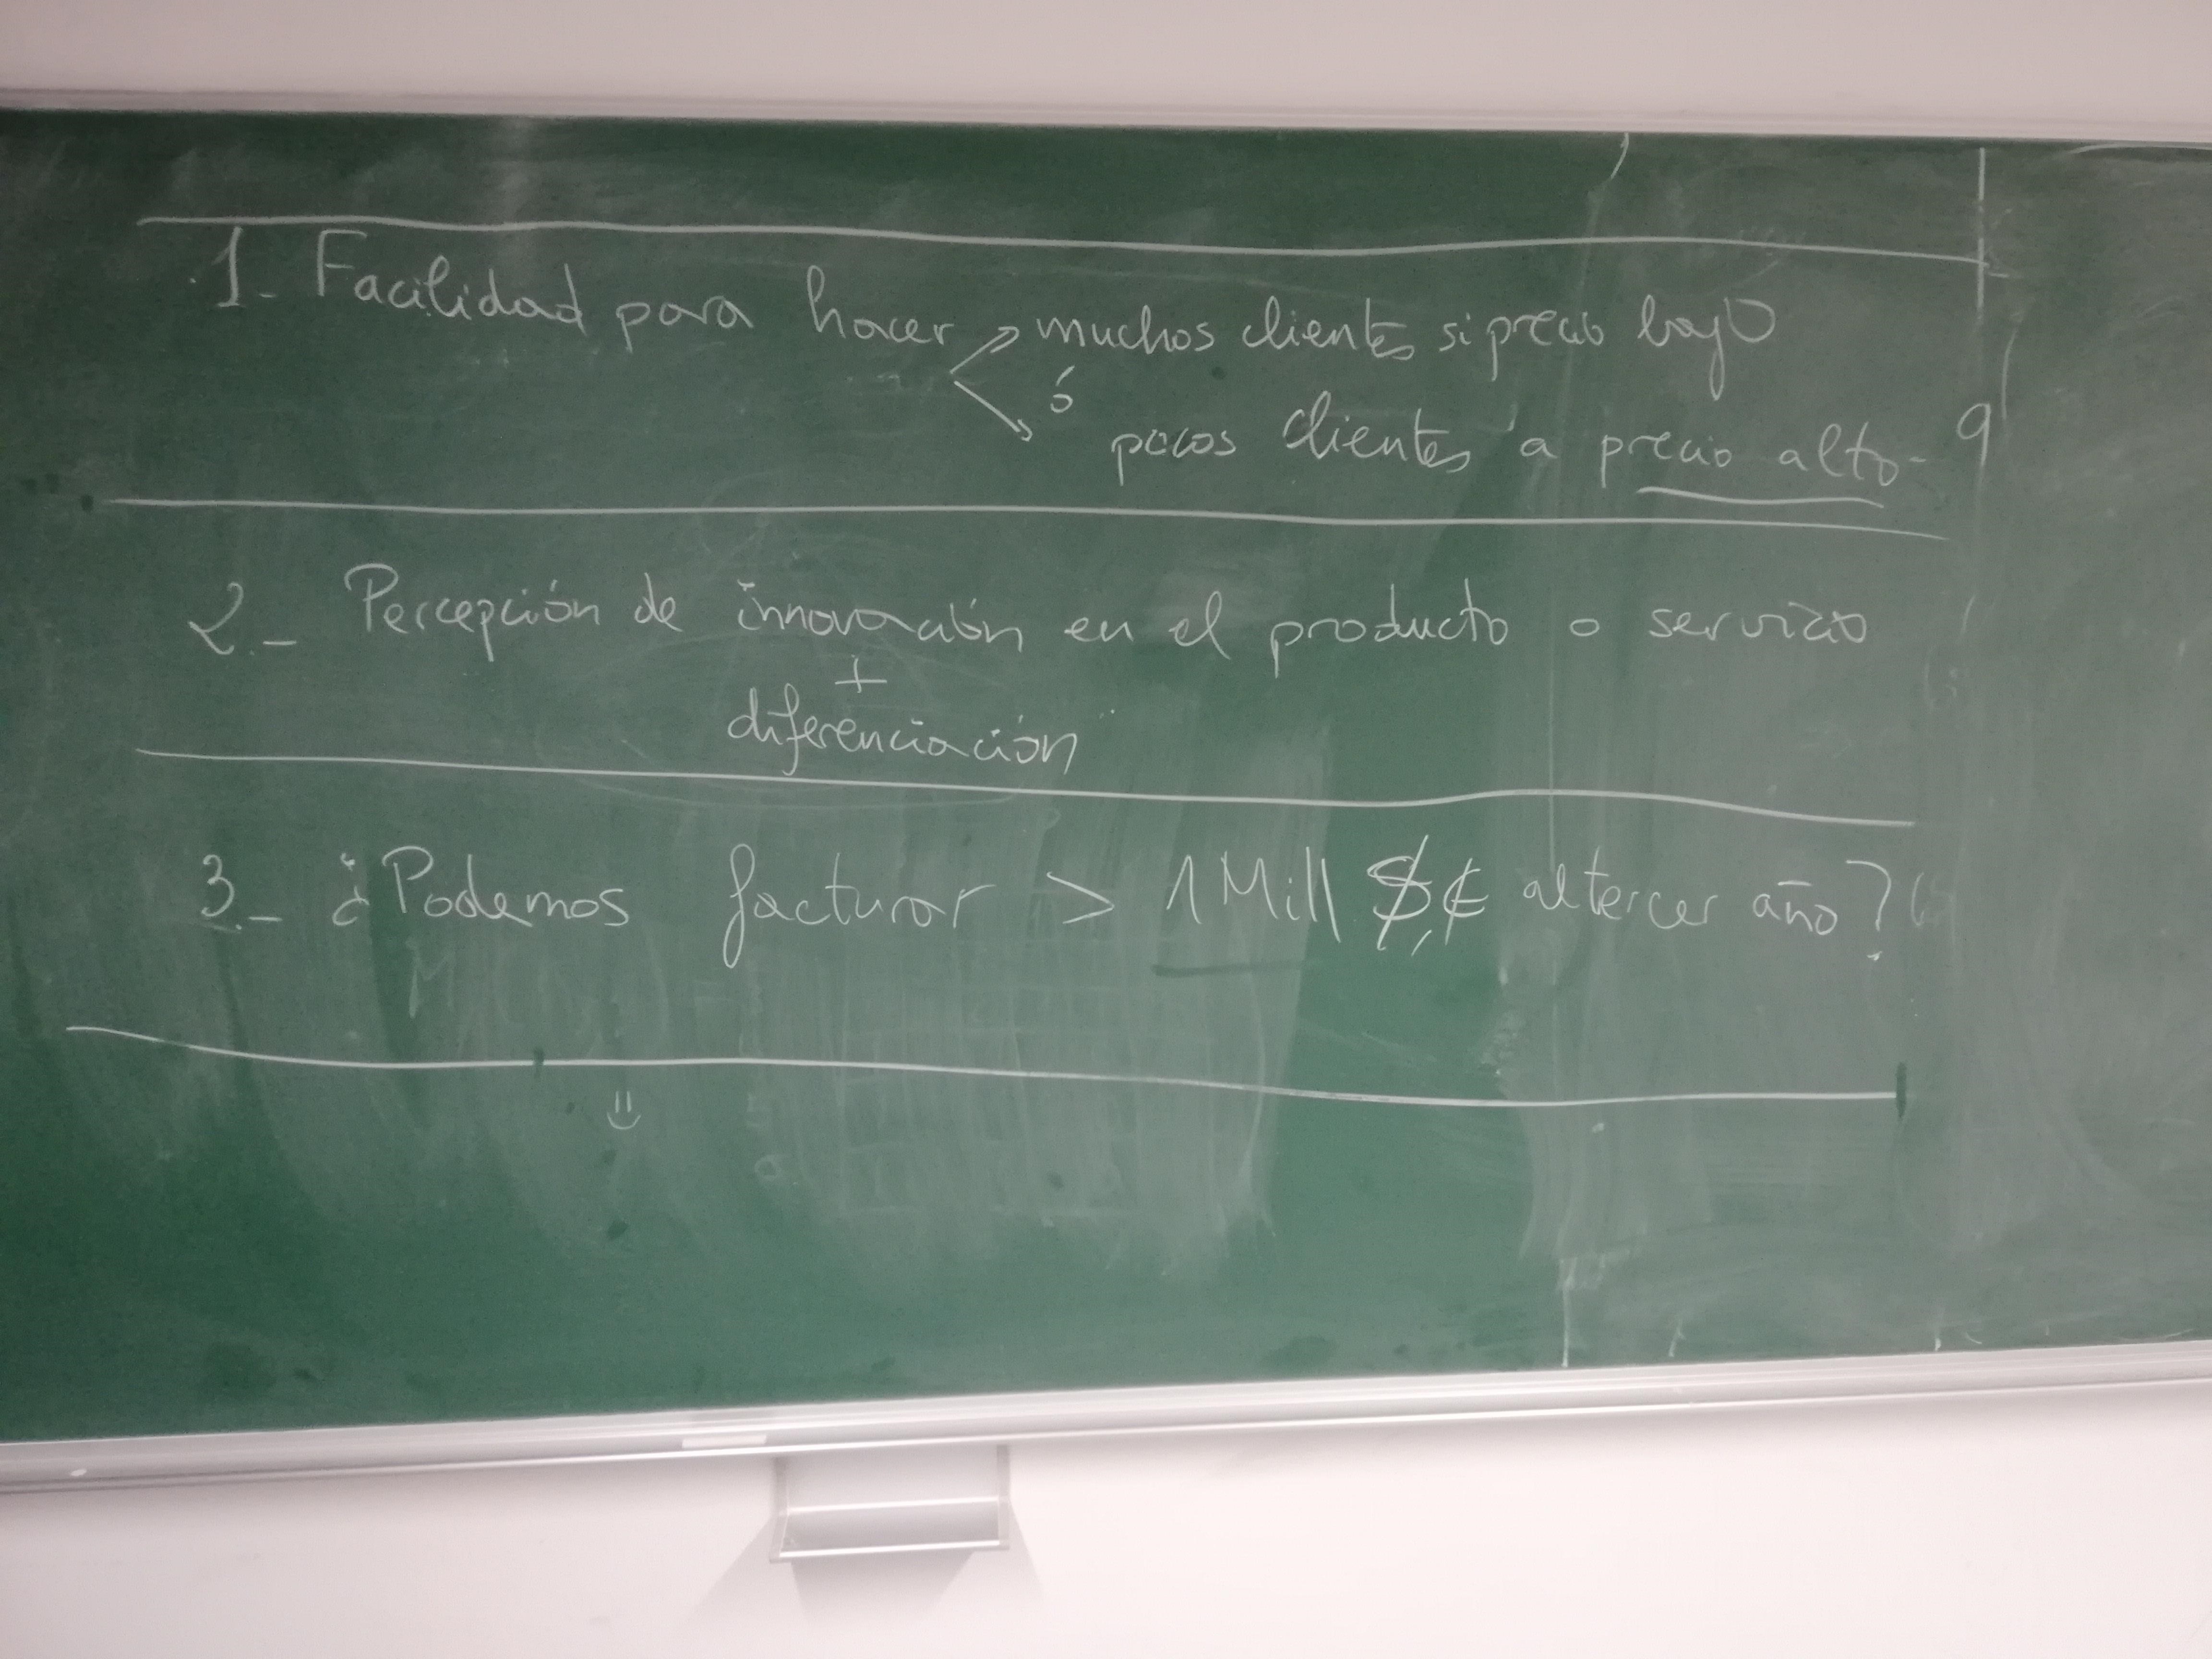 1_ Facilidad para hacer muchos clientes si precio bajo
ó
pocos clientes a precio alto- 9
2.- Percepción de innovación en el producto o servicio
+
diferenciación
3.- ¿Podemos facturar > 1 Mill $,€ al tercer año?